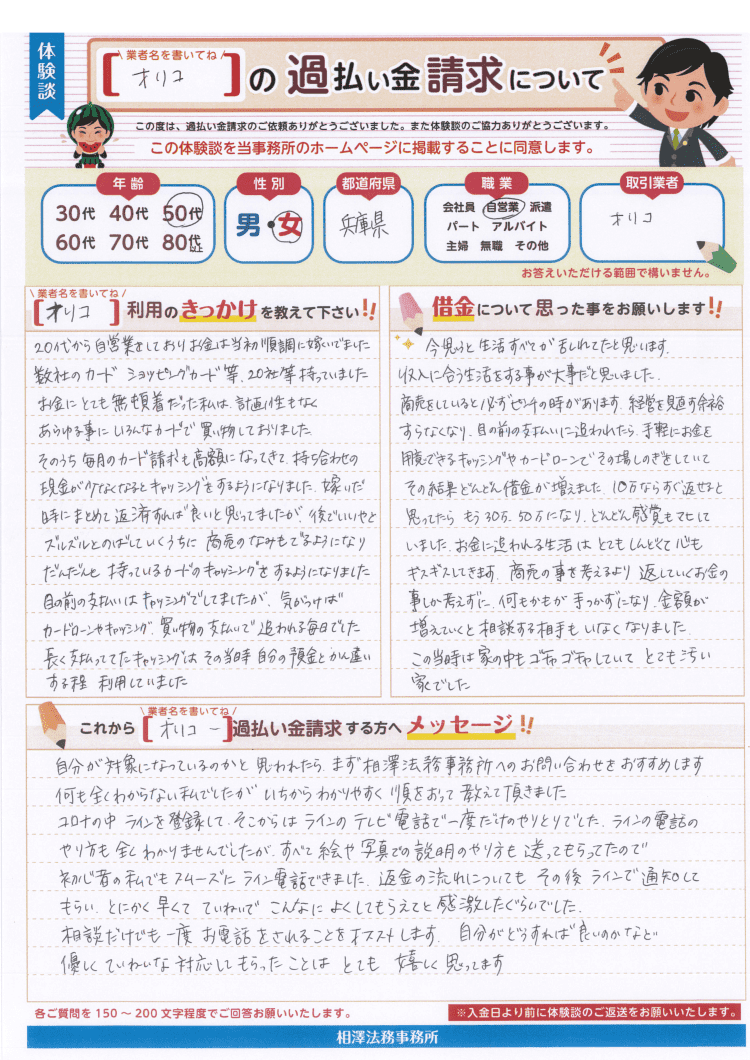 体験談
\ 業者名を書いてね /
[ オリコ ] の 過払い金 請求について
この度は、過払い金請求のご依頼ありがとうございました。また体験談のご協力ありがとうございます。
この体験談を当事務所のホームページに掲載することに同意します。
年齢
30代 40代 50代
60代 70代 80代以上
性別
男・女
都道府県
兵庫県
職業
会社員 自営業 派遣
パート アルバイト
主婦 無職 その他
取引業者
オリコ
お答えいただける範囲で構いません。
\ 業者名を書いてね /
[ オリコ ] 利用のきっかけを教えて下さい!!
20代から自営業をしておりお金は当初順調に稼いでました
数社のカード ショッピングカード等、20社等持っていました
お金にとても無頓着だった私は、計画性もなく
あらゆる事に いろんなカードで買い物しておりました
そのうち毎月のカード請求も高額になってきて、持ち合わせの
現金が少なくなるとキャッシングをするようになりました、稼いだ
時にまとめて返済すれば良いと思ってましたが、後でいいやと
ズルズルとのばしていくうちに 商売のなみもでるようになり
だんだんと 持っているカードのキャッシングをするようになりました
目の前の支払いはキャッシングでしてましたが、気がつけば
カードローンやキャッシング、買い物の支払いで追われる毎日でした
長く支払ってたキャッシングは その当時自分の預金とかん違い
する程 利用していました
借金について思った事をお願いします!!
今思うと生活すべてが乱れてたと思います。
収入に合う生活をする事が大事だと思いました。
商売をしていると必ずピンチの時があります、経営を見直す余裕
すらなくなり、目の前の支払いに追われたら、手軽にお金を
用意できるキャッシングやカードローンでその場しのぎをしていて
その結果どんどん借金が増えました、10万ならすぐ返せると
思ってたら もう30万、50万になり、どんどん感覚もマヒして
いました、お金に追われる生活は とてもしんどくて心も
ギスギスしてきます、商売の事を考えるより 返していくお金の
事しか考えずに、何もかもが手つかずになり、金額が
増えていくと相談する相手もいなくなりました、
この当時は家の中もゴチャゴチャしていて とても汚い
家でした
これから
\ 業者名を書いてね /
[ オリコ ] 過払い金請求する方へメッセージ!!
自分が対象になっているのかと思われたら、まず相澤法務事務所へのお問い合わせをおすすめします
何も全くわからない私でしたが いちからわかりやすく順をおって教えて頂きました
コロナの中 ラインを登録して、そこからはラインのテレビ電話で一度だけのやりとりでした、ラインの電話の
やり方も全くわかりませんでしたが、すべて絵や写真での説明のやり方も送ってもらってたので
初心者の私でもスムーズにライン電話できました、返金の流れについても その後ラインで通知して
もらい、とにかく早くて ていねいで こんなに よくしてもらえてと感激したぐらいでした、
相談だけでも一度 お電話をされることをオススメします、 自分がどうすれば良いのかなど
優しくていねいな対応してもらったことは とても 嬉しく思ってます
各ご質問を150～200文字程度でご回答お願いいたします。
※入金日より前に体験談のご返送をお願いいたします。
相澤法務事務所